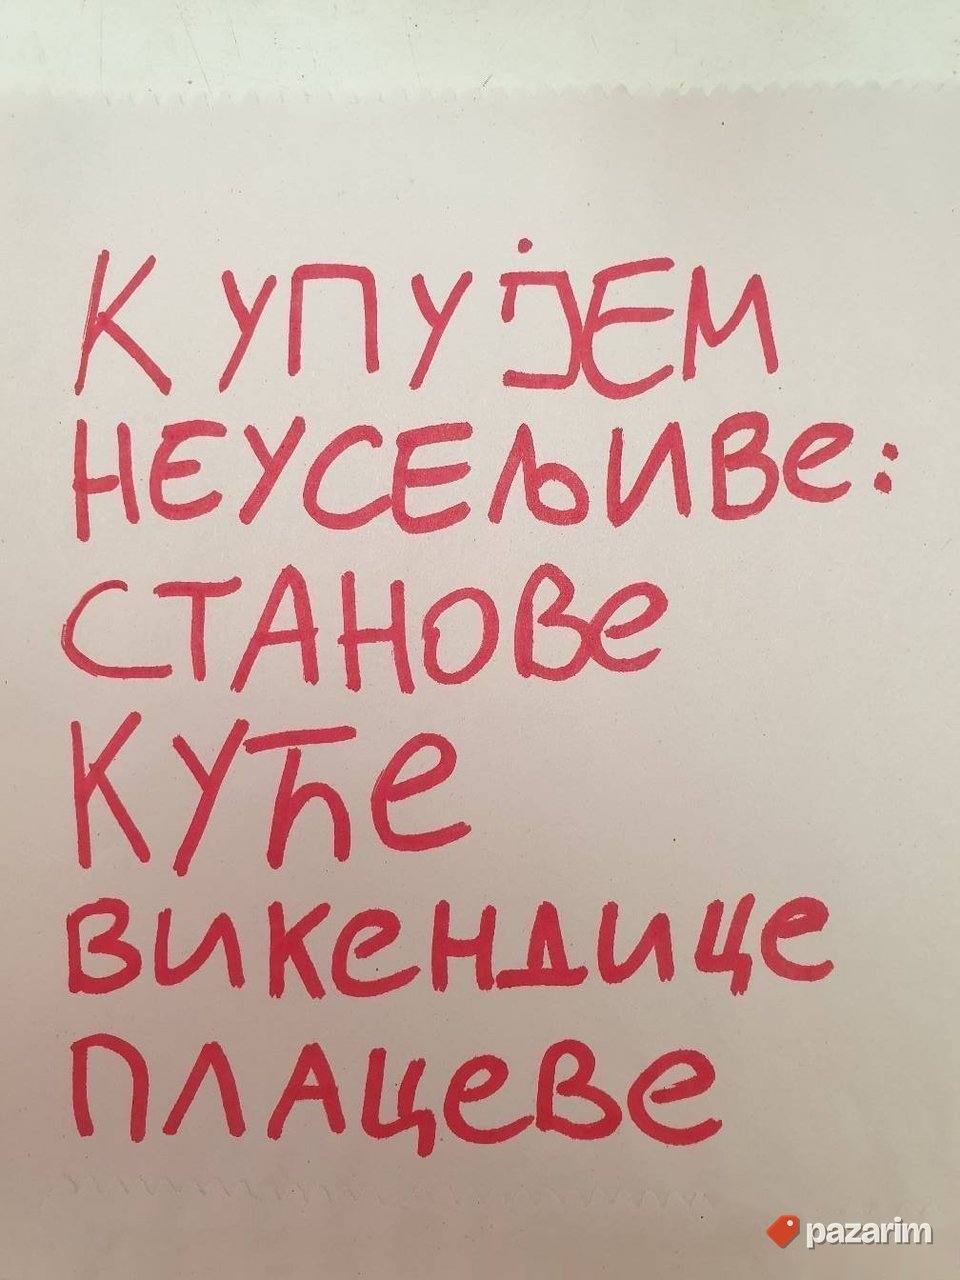 КУПУЈЕМ
НЕУСЕЉИВЕ:
СТАНОВЕ
КУЋЕ
ВИКЕНДИЦЕ
ПЛАЦЕВЕ
pazarim